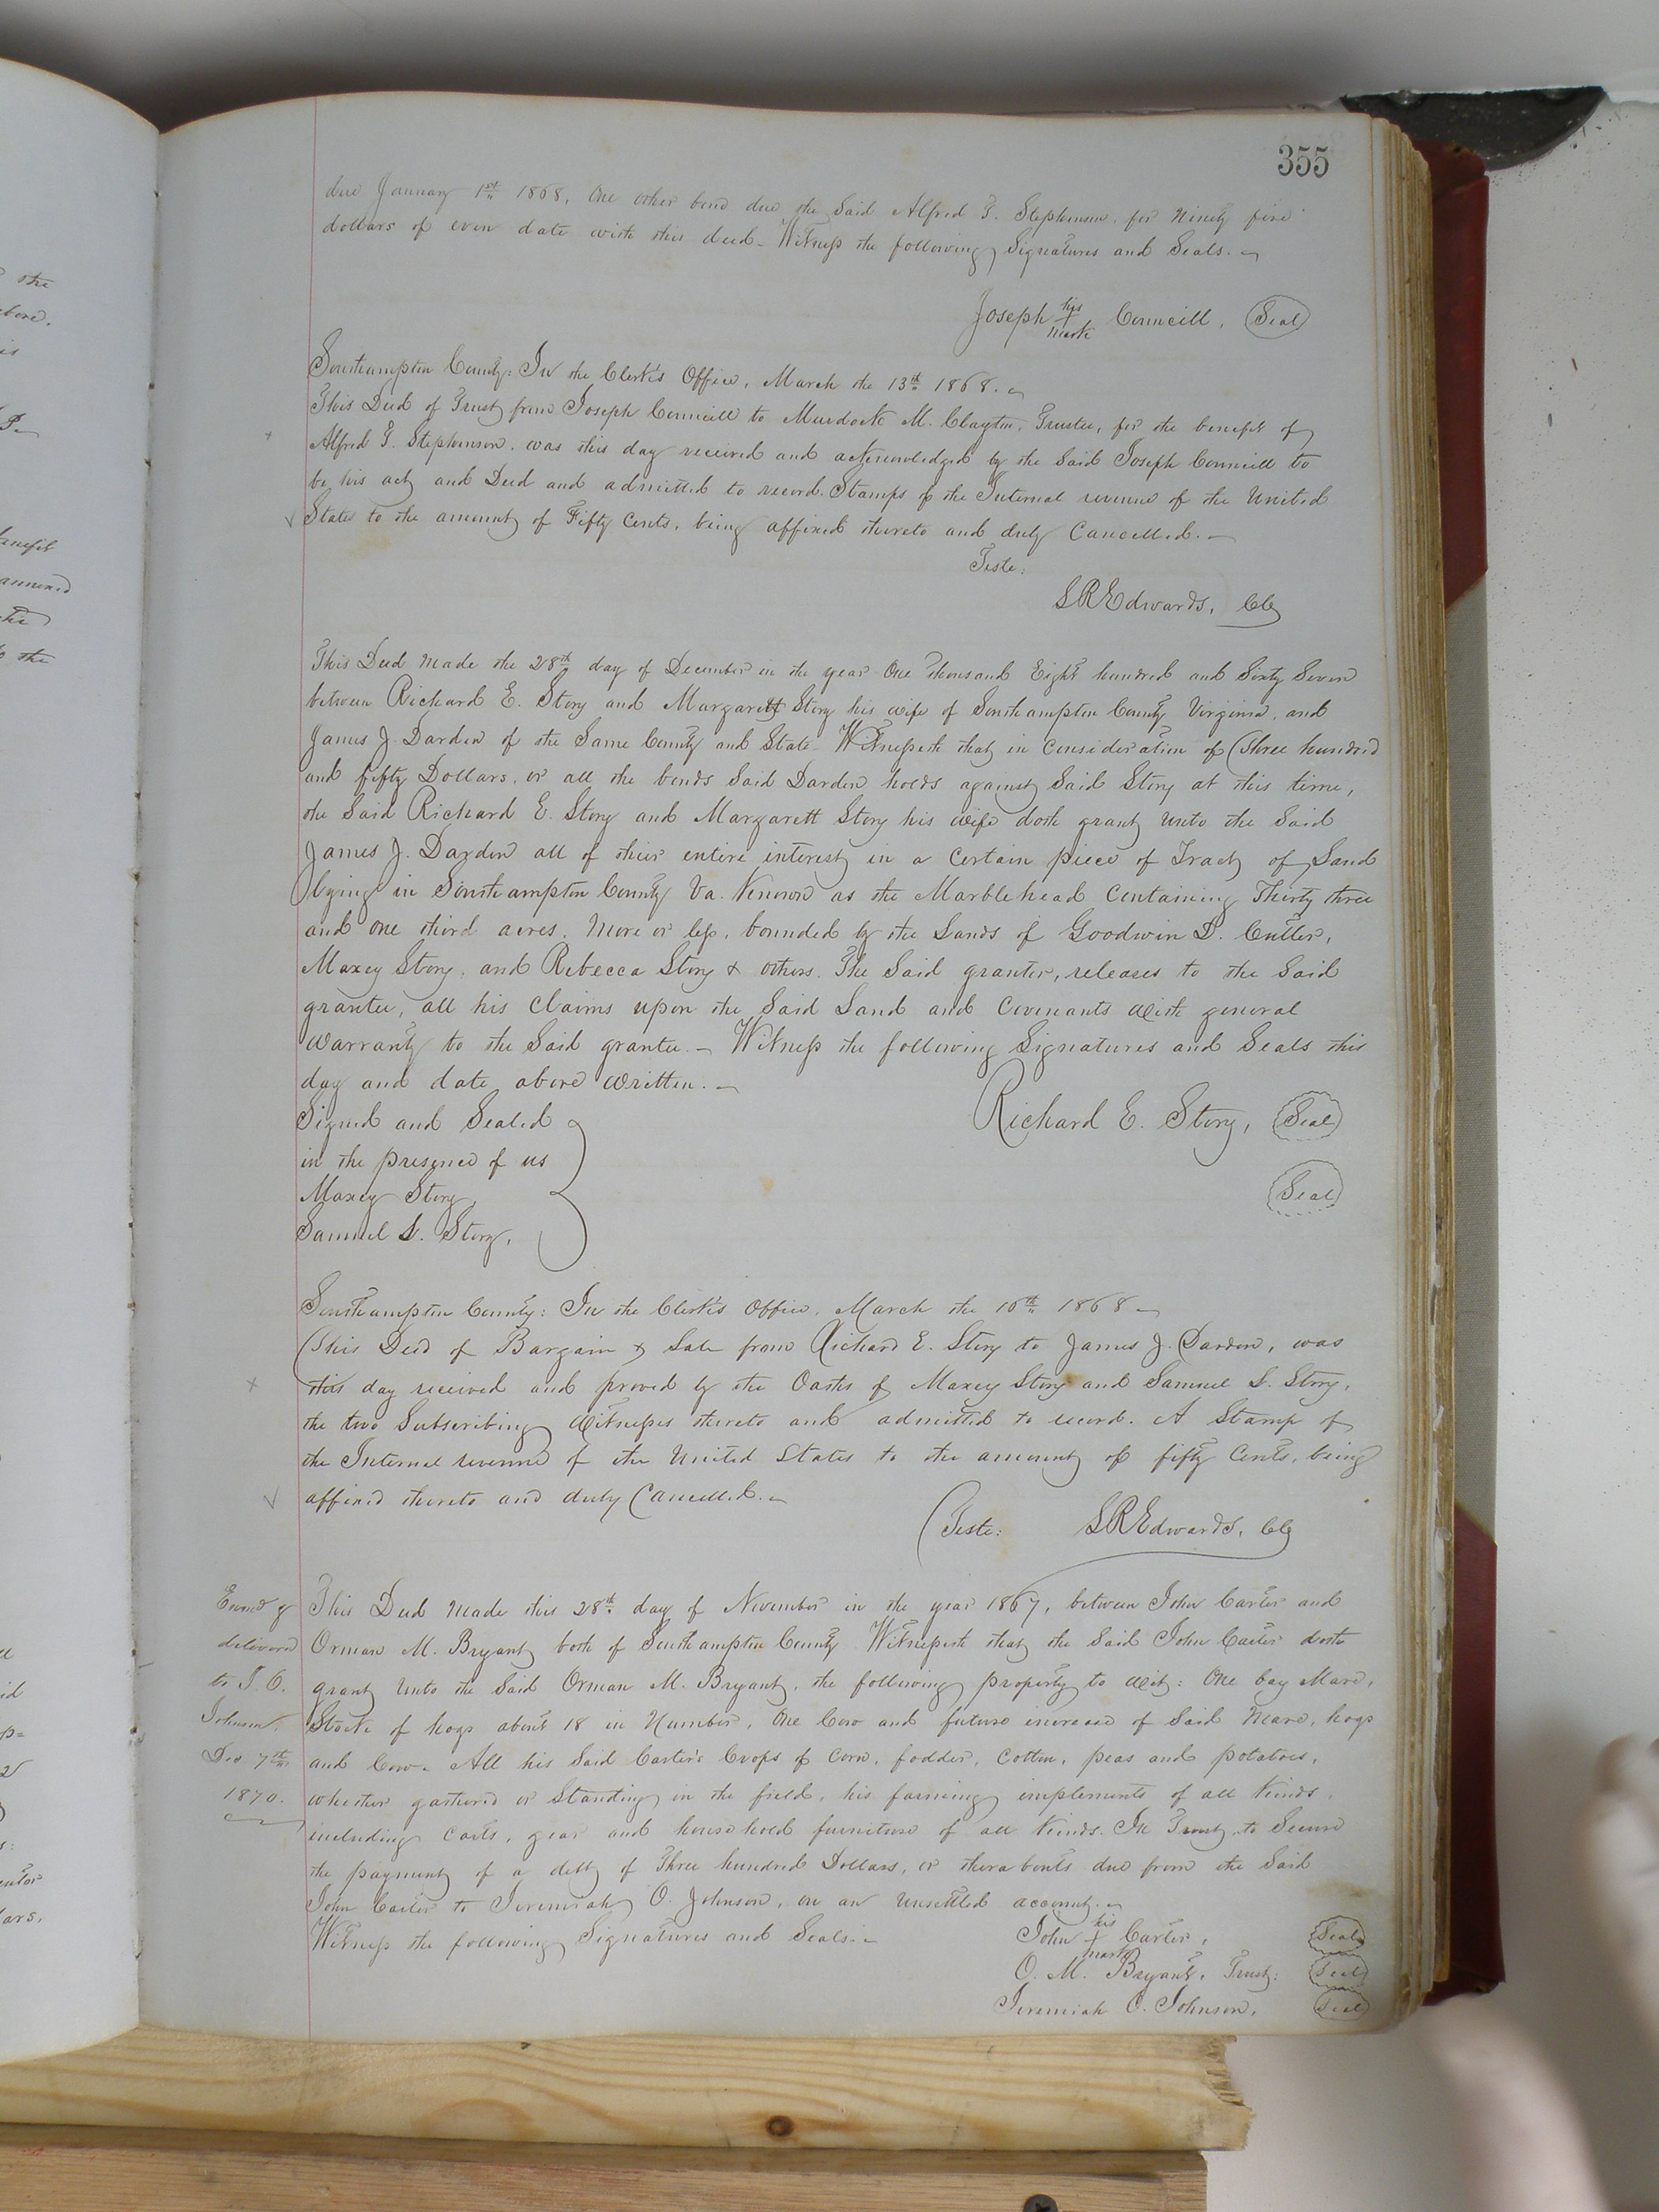 355
due January 1st 1868, One other bond due the Said Alfred T. Stephenson, for Ninety five
dollars of even date with this deed - Witness the following Signatures and Seals. -
Joseph his + mark Councill, Seal
Southampton County: In the Clerk's Office, March the 13th 1868. -
This Deed of Trust from Joseph Councill to Murdock M. Clayton, Trustee, for the benefit of
Alfred T. Stephenson, was this day received and acknowledged by the Said Joseph Councill to
be his act and Deed and admitted to record. Stamps of the Internal revenue of the United
States to the amount of Fifty Cents, being affixed thereto and duly Cancelled. -
Teste:
S R Edwards, Clk
This Deed Made the 28th day of December in the year One thousand Eight hundred and Sixty Seven
between Richard E. Story and Margarett Story his wife of Southampton County Virginia, and
James J. Darden of the Same County and State - Witnesseth that in Consideration of Three hundred
and fifty Dollars, or all the bonds Said Darden holds against Said Story at this time,
the Said Richard E. Story and Margarett Story his wife doth grant unto the Said
James J. Darden all of their entire interest in a Certain piece of Tract of Land
lying in Southampton County Va. Known as the Marblehead Containing Thirty three
and one third acres, More or less, bounded by the Lands of Goodwin D. Cutler,
Maxey Story, and Rebecca Story & others. The Said grantor, releases to the Said
grantee, all his Claims upon the Said Land and Covenants with general
Warranty to the Said grantee. - Witness the following Signatures and Seals this
day and date above written. -
Signed and Sealed
in the presence of us
Maxey Story,
Samuel S. Story,
Richard E. Story, Seal
Seal
Southampton County: In the Clerk's Office, March the 16th 1868 -
This Deed of Bargain & Sale from Richard E. Story to James J. Darden, was
this day received and proved by the Oaths of Maxey Story and Samuel S. Story,
the two Subscribing Witnesses thereto and admitted to record. A Stamp of
the Internal revenue of the United States to the amount of fifty Cents, being
affixed thereto and duly Cancelled. -
Teste: S R Edwards, Clk
Exmd &
delivered
to J. O.
Johnson,
Dec 7th
1870.
This Deed Made this 28th day of November in the year 1867, between John Carter and
Orman M. Bryant both of Southampton County Witnesseth that the Said John Carter doth
grant unto the Said Orman M. Bryant, the following property to wit: One bay Mare,
Stock of hogs about 18 in Number, One Cow and future increase of Said Mare, hogs
and Cow - All his Said Carter's Crops of Corn, fodder, Cotton, peas and potatoes,
whether gathered or Standing in the field, his farming implements of all Kinds,
including Carts, gear and household furniture of all Kinds. In Trust to Secure
the payment of a debt of Three hundred Dollars, or thereabouts due from the Said
John Carter to Jeremiah O. Johnson, on an unsettled account. -
Witness the following Signatures and Seals. -
John his + mark Carter, Seal
O. M. Bryant, Trust: Seal
Jeremiah O. Johnson, Seal